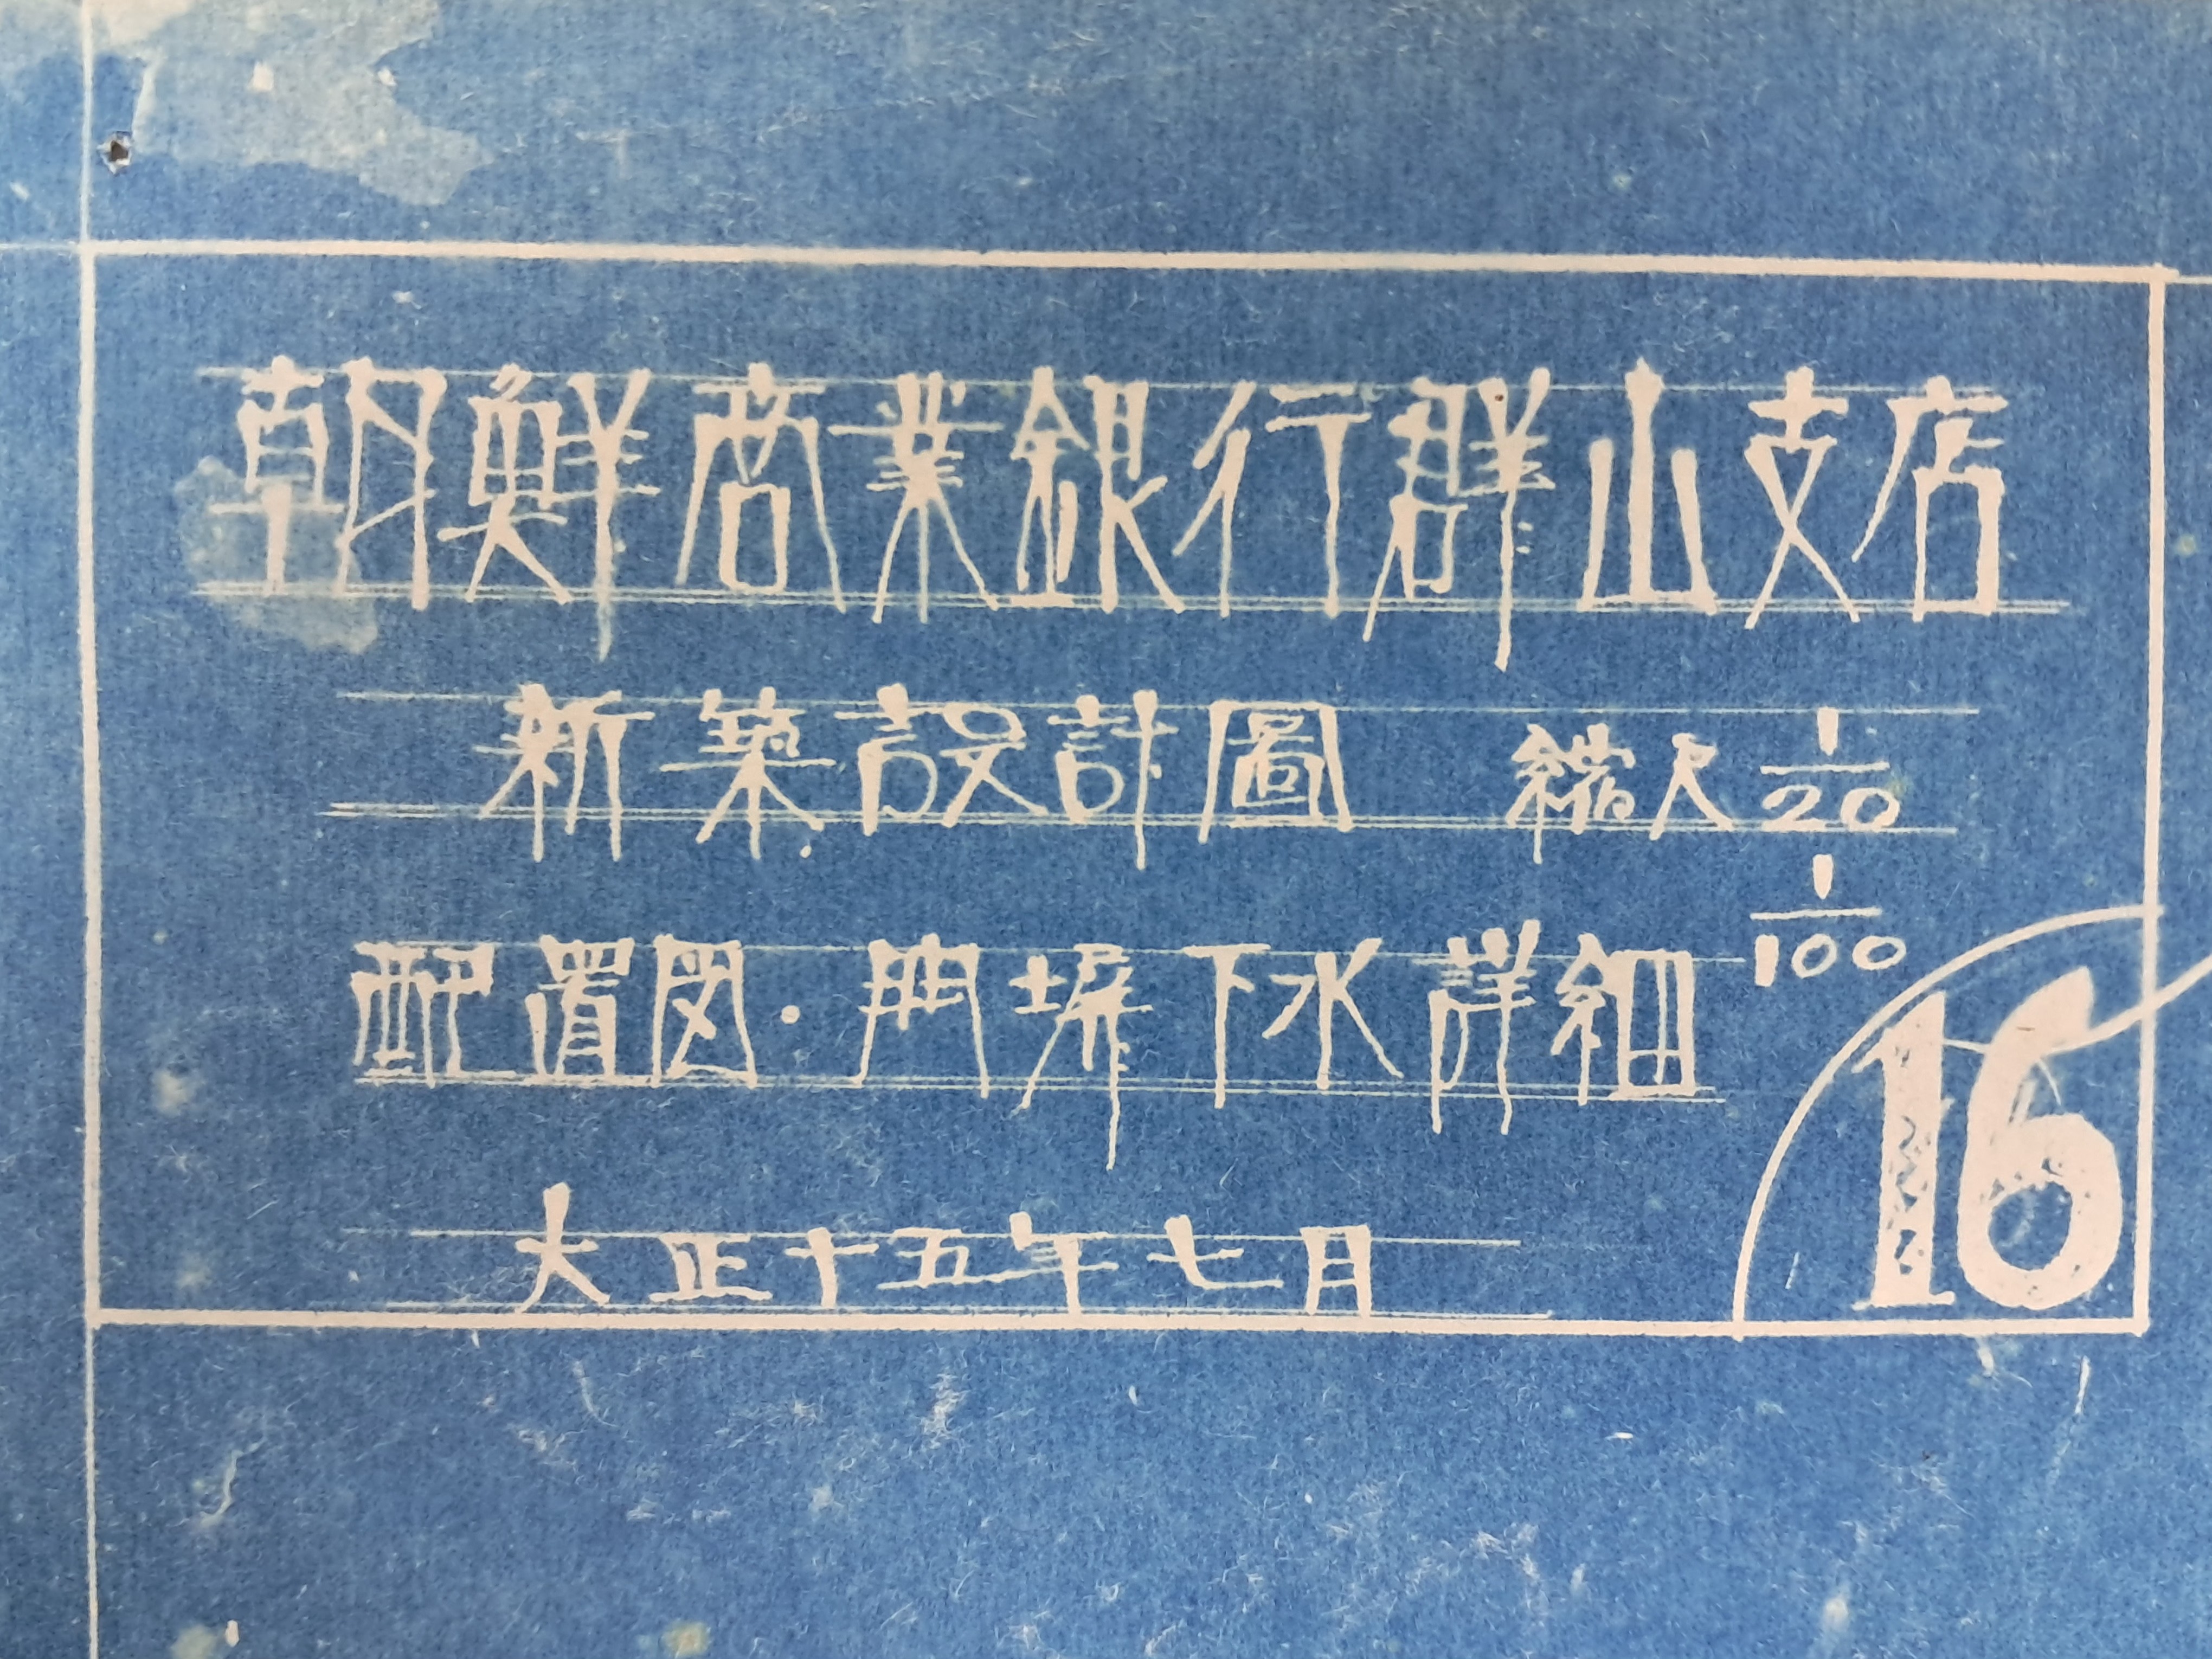 朝鮮商業銀行群山支店
新築設計圖 縮尺 1/20
1/100
配置図・門塀下水詳細
大正十五年七月
16